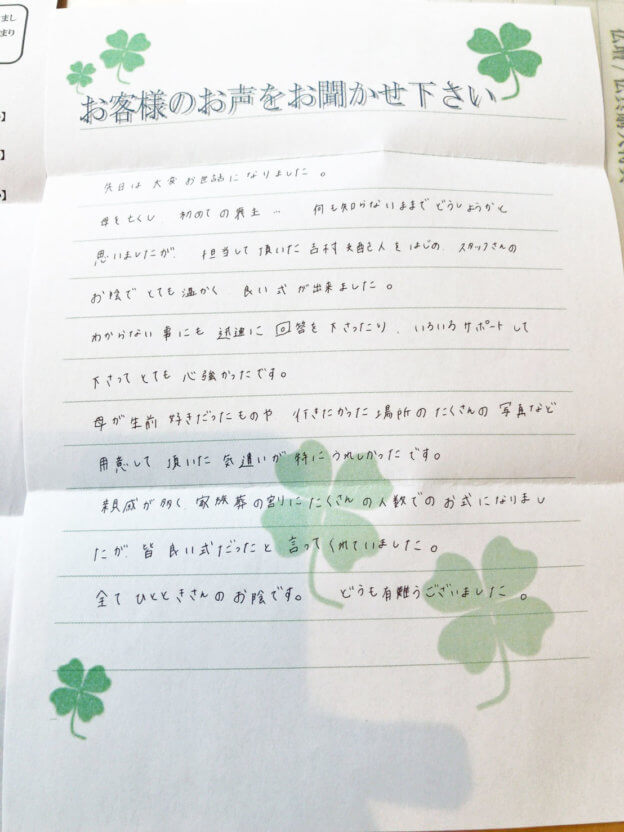 お客様のお声をお聞かせ下さい
先日は 大変 お世話になりました。
母を亡くし、初めての喪主… 何も知らないままでどうしようかと
思いましたが、担当して頂いた 吉村 支配人をはじめ、スタッフさんの
お陰で とても 温かく、良い式が出来ました。
わからない事にも 迅速に 回答を下さったり、いろいろサポートして
下さって とても 心強かったです。
母が生前 好きだったものや、行きたかった場所の たくさんの 写真など
用意して 頂いた 気遣いが 特に うれしかったです。
親戚が多く、家族葬の割に たくさんの人数での お式になりまし
たが、皆 良い式だったと 言ってくれていました。
全て ひとときさんのお陰です。 どうも有難うございました。
まし
まり